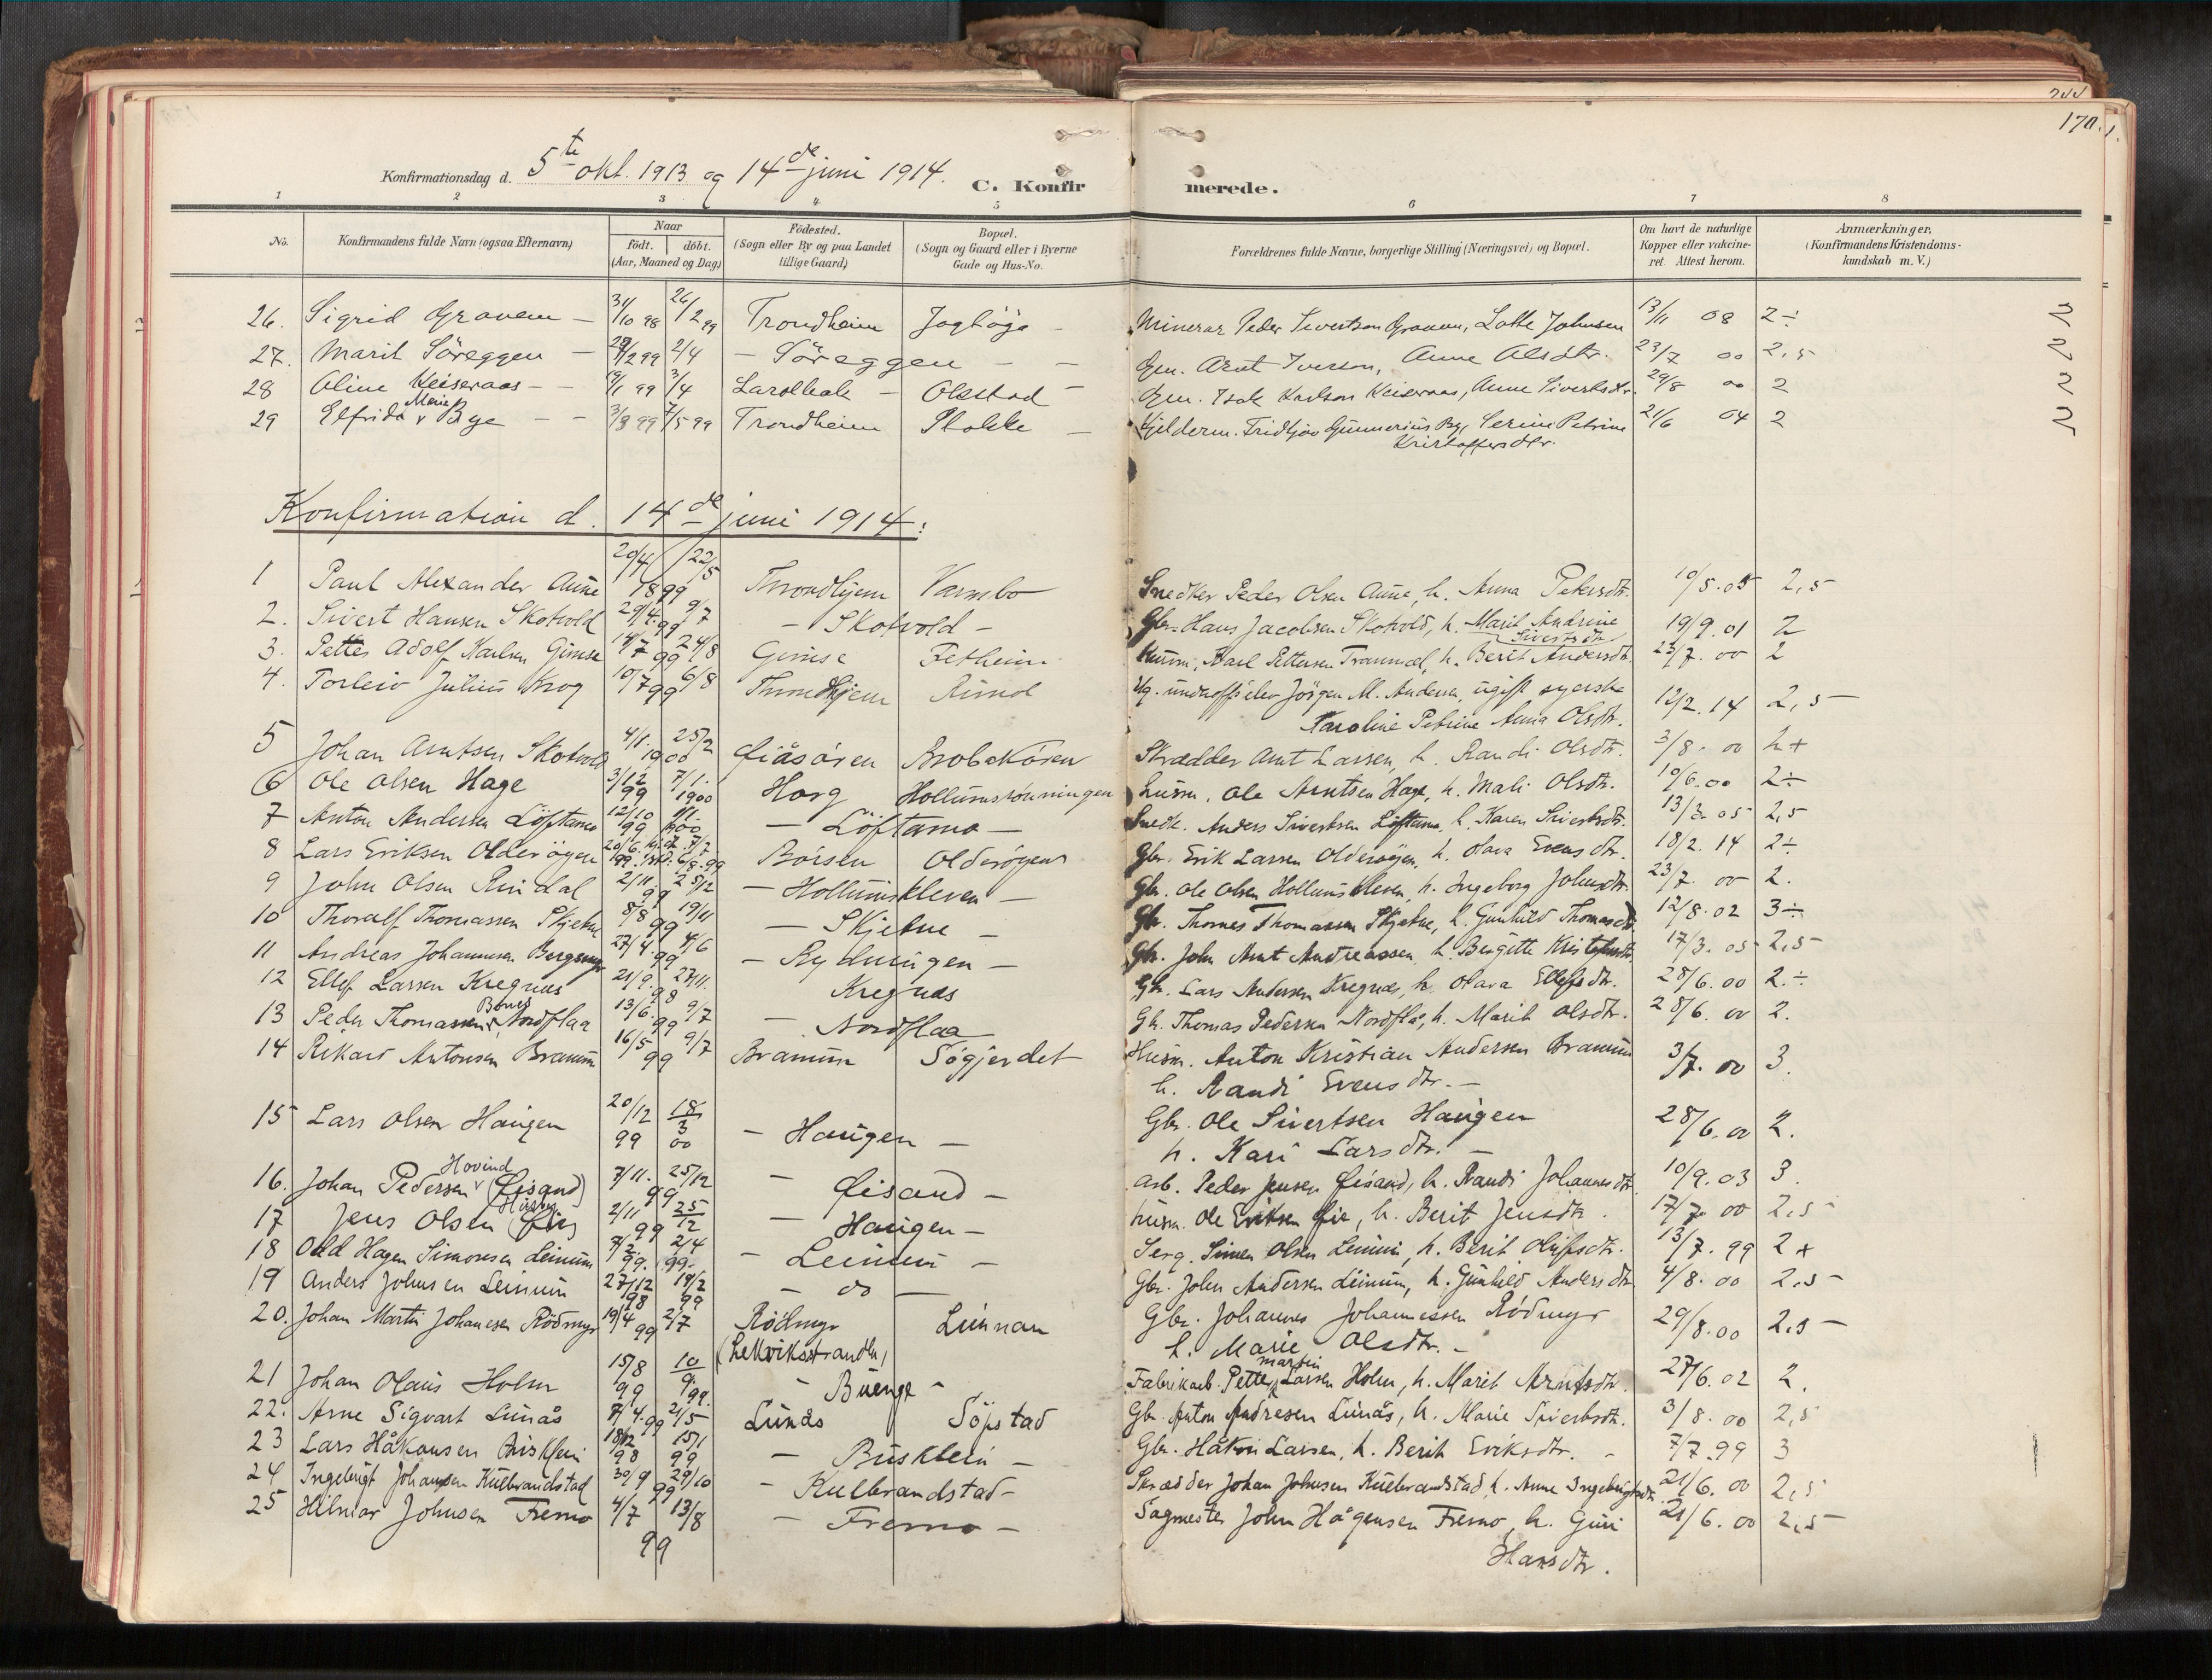 244
170.
Konfirmationsdag d. 5te okt. 1913 og 14de juni 1914.
C. Konfirmerede.
1 2 3 4 5 6 7 8
No. Konfirmandens fulde Navn (ogsaa Efternavn) Naar født. døbt. (Aar, Maaned og Dag) Fødested. (Sogn eller By og paa Landet tillige Gaard) Bopæl. (Sogn og Gaard eller i Byerne Gade og Hus-No. Forældrenes fulde Navne, borgerlige Stilling (Næringsvei) og Bopæl. Om havt de naturlige Kopper eller vakcineret. Attest herom. Anmærkninger. (Konfirmandens Kristendomskundskab m. V.)
26. Sigrid Graven 31/10 98 26/2 99 Trondheim Minerar Peder Sivertsen Graven, Lotte Johnsen 13/11 08 2÷
27. Marit Söreggen 28/2 99 2/4 - Söreggen - Gm. Arnt Iversen, Anne Olsdtr. 23/7 00 2,5
28 Oline Keiseraas 19/1 99 3/4 Olstad Gm. Isak Karlsen Keiseraas, Anne Sivertsdtr. 29/8 00 2
29 Elfrida Marie Bye 3/3 99 7/5 99 Trondheim Fridtjov Gunnerius By, Serine Petrine Kristoffersdtr. 21/6 04 2
Konfirmation d. 14de juni 1914:
1 Paul Alexander Aune 20/4 22/5 1899 Throndhjem Varmbo Snedker Peder Olsen Aune, h. Anna Petersdtr. 10/5.05 2,5
2. Sivert Hansen Skotvold 29/4.99 9/7 - Skotvold - Gbr. Hans Jacobsen Skotvold, h. Marit Andrine Sivertsdtr. 19/9.01 2
3. Petter Adolf Karlsen Gimse 14/7 99 24/8 Gimse Fetheim Husm. Karl Pettersen Tranmæl, h. Berit Andersdtr. 23/7. 00 2
4. Torleiv Julius Krog 10/7 99 6/8 Throndhjem Rimol Ug. underoff.elev Jörgen M. Andersen, ugift syerske Karoline Petrine Anna Olsdtr. 12/2.14 2,5
5 Johan Arntsen Skotvold 4/1. 25/2 1900 Øiåsören Brobakören Skrædder Arnt Larsen, h. Randi Olsdtr. 3/8. 00 2+
6 Ole Olsen Hage 3/12 99 7/1. 1900 Horg Hollumsrönningen husm. Ole Arntsen Hage, h. Mali Olsdtr. 10/6.00 2÷
7 Anton Andersen Löftamo 12/10 99 1/1. 1900 - Löftamo - Snedk. Anders Sivertsen Löftamo, h. Karen Sivertsdtr. 13/3. 05 2,5
8 Lars Eriksen Olderöyen 20/6. 99 Börsen Olderöyen Gbr. Erik Larsen Olderöyen, h. Olava Evensdtr. 18/2. 14 2÷
9 John Olsen Rindal 2/11 99 25/12 - Hollumskleven - Gbr. Ole Olsen Hollumskleven, h. Ingeborg Johnsdtr. 23/7. 00 2.
10 Thoralf Thomassen Skjetne 8/8 99 19/11 - Skjetne - Gbr. Thomas Thomassen Skjetne, h. Gunhild Thomasdtr. 12/8.02 3÷
11 Andreas Johannesen Bergsmyr 27/4.99 4/6 - Rydningen - Gbr. John Arnt Andreassen, h. Bergitte Kristofersdtr. 17/3. 05 2,5
12 Ellef Larsen Kregnes 21/9. 98 27/11. Kregnes Gbr. Lars Andersen Kregnes, h. Olava Ellefsdtr. 28/6.00 2.÷
13 Peder Thomassen Bones Nordflaa 13/6. 99 9/7 - Nordflaa Gbr. Thomas Pedersen Nordflå, h. Marit Olsdtr. 28/6. 00 2.
14 Rikard Antonsen Bramm 16/5 99 9/7 Sögjerdet Husm. Anton Kristian Andersen h. Randi Evensdtr. - 3/7. 00 3.
15 Lars Olsen Haugen 20/12 99 18/3 00 - Haugen - Gbr. Ole Sivertsen Haugen h. Kari Larsdtr. - 28/6.00 2.
16. Johan Pedersen Hovind (Øisand) 7/11. 99 25/12 - Øisand - Arb. Peder Jensen Øisand, h. Randi Johannesdtr. 10/9.03 3.
17 Jens Olsen 2/11 99 25/12 - Haugen - husm. Ole Eriksen Øie, h. Berit Jensdtr. 17/7. 00 2,5
18 Odd Hagen Simonsen Leinum 7/2. 99. 2/4 99. - Leinum - Serg. Simen Olsen Leinum, h. Berit Olufsdtr. 13/7.99 2+
19 Anders Johnsen Leinum 27/12 98 19/2 99 - do - Gbr. John Andersen Leinum, h. Gunhild Andersdtr. 4/8. 00 2,5
20. Johan Martin Johanesen Rödmyr 19/4 99 2/7 Rödmyr (Lekvikstranden) Luinnan Gbr. Johannes Johannessen Rödmyr h. Marie Olsdtr. - 29/8.00 2,5
21 Johan Olaus Holm 15/8 99 10/9. 99. - Buenget - Fabrikarb. Petter Martin Larsen Holm, h. Marit Arntsdtr. 27/6.02 2.
22. Arne Sigvart Lunås 7/4.99 21/5 Lunås Söjstad Gbr. Anton Andresen Lunås, h. Marie Sivertsdtr. 3/8.00 2,5
23 Lars Håkonsen Busklein 18/12 98 15/1 99 - Busklein - Gbr. Håkon Larsen, h. Berit Eriksdtr. - 7/7.99 3
24 Ingebrigt Johansen Kulbrandstad 30/9 99 29/10 - Kulbrandstad - Skrædder Johan Johnsen Kulbrandstad, h. Anne Ingebrigtsdtr. 21/6. 00 2,5
25 Hilmar Johnsen Fremo 4/7 13/8 99 - Fremo - Sagmester John Hågensen Fremo, h. Guri Hansdtr. 21/6. 00 2,5